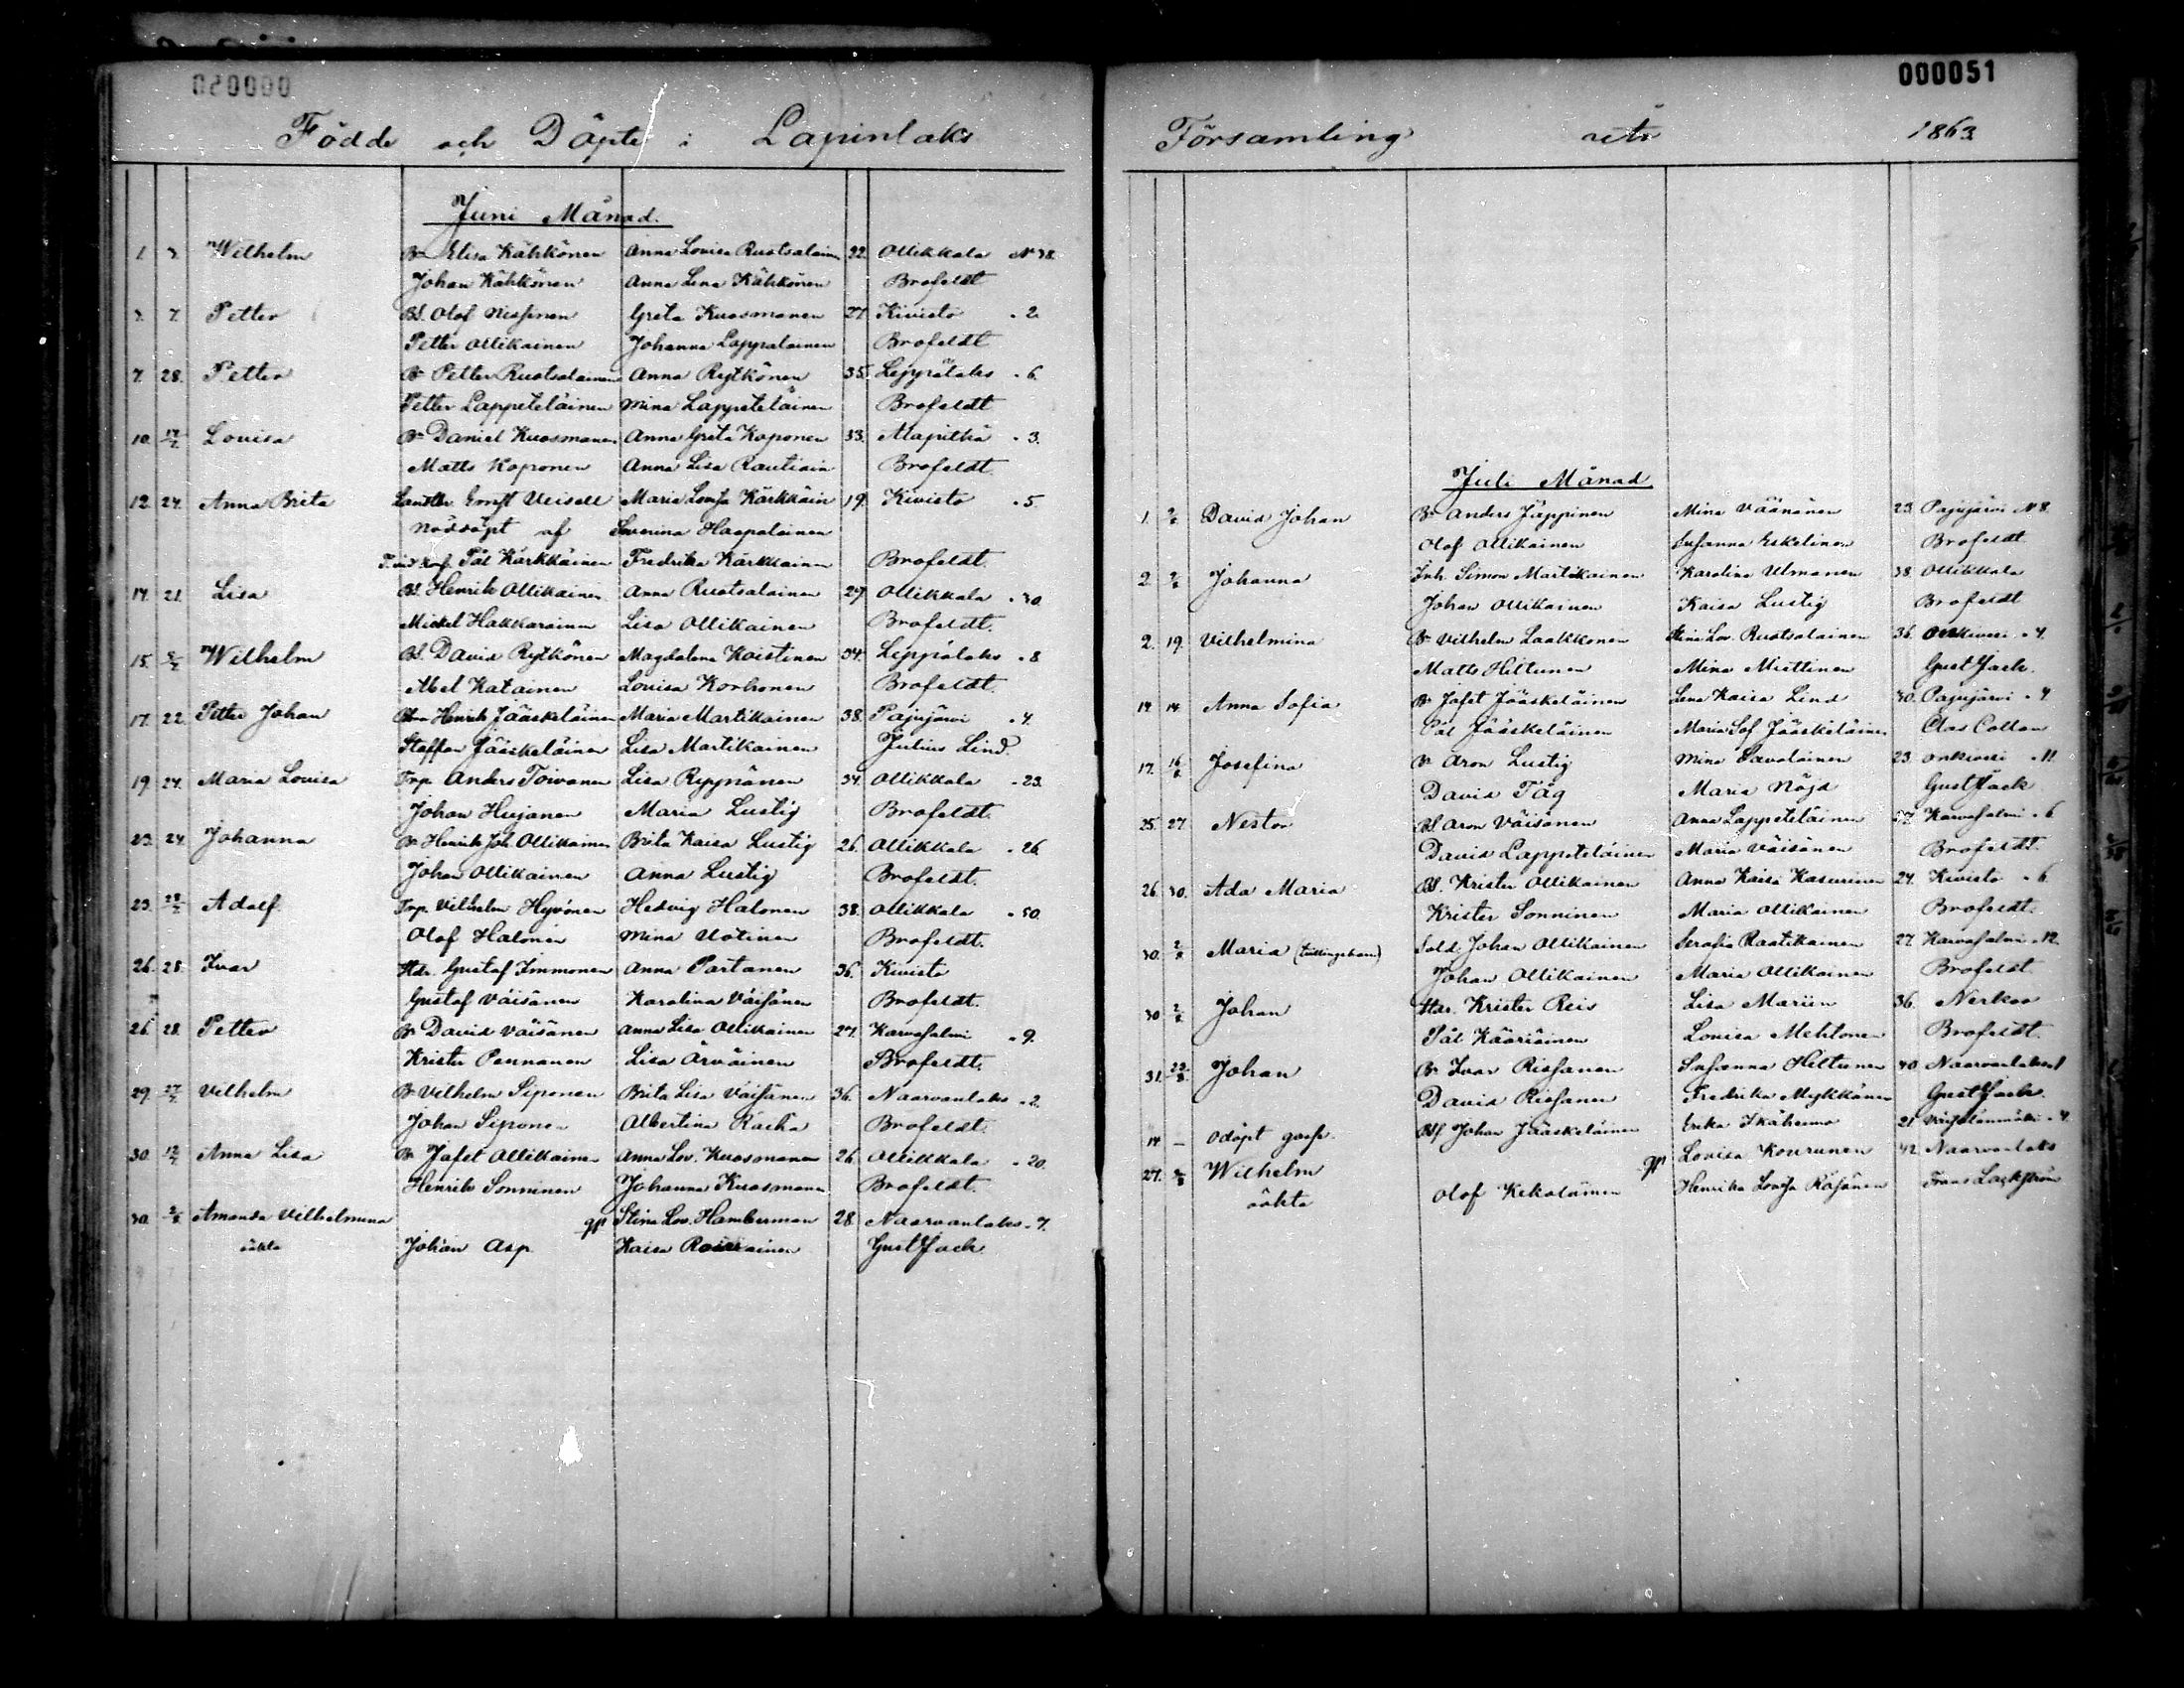 000050
Födde och Döpte i Lapinlaks
Juni Månad.
1. 3. Wilhelm Bd Elisa Kähkönen Anna Lovisa Ruotsalainen 22. Ollikkala N 38.
Johan Kähkönen Anna Lena Kähkönen Brofeldt
3. 7. Petter Bd. Olof Nissinen Greta Kuosmanen 27. Kivisto . 2.
Petter Ollikainen Johanna Lappalainen Brofeldt
7. 28. Petter Bd Petter Ruotsalainen Anna Rytkönen 35. Leppälaks . 6.
Petter Lappeteläinen Mina Lappeteläinen Brofeldt
10. 12/7. Lovisa Bd Daniel Kuosmanen Anna Greta Koponen 33. Alapitkä . 3.
Matts Koponen Anna Lisa Rautiain Brofeldt.
12. 24. Anna Brita Ernst Maria Lovisa Kärkkäin 19. Kivisto . 5.
Nöddöpt af Severina Haapalainen
Pål Kärkkäinen Fredrika Kärkkainen Brofeldt.
14. 21. Lisa Bd. Henrik Ollikainen Anna Ruotsalainen 27. Ollikkala . 30.
Mickel Hakkarainen Lisa Ollikainen Brofeldt.
15. Wilhelm Bd. David Rytkönen Magdalena Koistinen 34. Leppälaks . 8
Abel Katainen Lovisa Korhonen Brofeldt.
17. 22. Petter Johan Henrik Jääskeläinen Maria Martikainen 38. Pajujärvi . 4.
Staffan Jääskeläinen Lisa Martikainen Julius Lind.
19. 24. Maria Lovisa Trp. Anders Toivanen Lisa Ryynänen 34. Ollikkala . 23.
Johan Hujanen Maria Lustig Brofeldt.
23. 24. Johanna Bd Henrik Joh. Ollikainen Brita Kaisa Lustig 26. Ollikkala . 26.
Johan Ollikainen Anna Lustig Brofeldt.
23. Adolf Trp. Vilhelm Hyvönen Hedvig Halonen 38. Ollikkala . 50.
Olof Halonen Mina Uotinen Brofeldt.
26. 28. Ivar Gustaf Immonen Anna Partanen 36. Kivisto
Gustaf Väisänen Karolina Väisänen Brofeldt.
26. 28. Petter Bd David Väisänen Anna Lisa Ollikainen 27. Karvasalmi . 9.
Krister Pennanen Lisa Örväinen Brofeldt.
29. 27/7. Vilhelm Bd Vilhelm Siponen Brita Lisa Väisänen 36. Naarvanlaks . 2.
Johan Siponen Albertina Räihä Brofeldt.
30. 12/7. Anna Lisa Bd Jafet Ollikainen Anna Lov. Kuosmanen 26. Ollikkala . 20.
Henrik Sonninen Johanna Kuosmanen Brofeldt.
30. 2/8. Amanda Vilhelmina Stina Lov. Hamberman 28. Naarvanlaks . 7.
oäkta Johan Asp Kaisa Gust Jack
000051
Församling år 1863
Juli Månad
1. David Johan Bd Anders Jäppinen Mina Väänänen 23. Pajujärvi N 8.
Olof Ollikainen Susanna Eskelinen Brofeldt.
2. Johanna Inh. Simon Martikainen Karolina Ulmanen 38. Ollikkala
Johan Ollikainen Kaisa Lustig Brofeldt
2. 19. Vilhelmina Bd Vilhelm Laakkonen Stina Lov. Ruotsalainen 36. Onkivesi . 4.
Matts Hiltunen Mina Miettinen Gust Jack.
14. Anna Sofia Bd Jafet Jääskeläinen Lena Kaisa Lind 30. Pajujärvi . 4
Pål Jääskeläinen Maria Sof Jääskeläinen Clas Collan
17. 16/8. Josefina Bd Aron Lustig Mina Savolainen 23. Onkivesi . 11.
David Tåg Maria Nöjd Gust Jack
25. 27. Nestor Bd Aron Väisänen Anna Lappeteläinen 27. Karvasalmi . 6
David Lappeteläinen Maria Väisänen Brofeldt.
26. 30. Ada Maria Bd. Krister Ollikainen Anna Kaisa Kasurinen 24. Kivisto . 6
Krister Sonninen Maria Ollikainen Brofeldt.
30. 2/8. Maria (tvillingebarn) Sold. Johan Ollikainen Serafia Raatikainen 27. Karvasalmi . 12.
Johan Ollikainen Maria Ollikainen Brofeldt
30. 2/8. Johan Krister Reis Lisa Mariin 36. Nerkoo
Pål Kääriäinen Lovisa Mehtonen Brofeldt.
31. 23/8. Johan Bd Ivar Rissanen Susanna Hiltunen 40. Naarvanlaks 1
David Rissanen Fredrika Mykkänen Gust Jack.
14. – Odöpt goss. Johan Jääskeläinen Erika Ikäheimo 21. Väisälänmäki . 4.
27. Wilhelm Lovisa Kourunen 42. Naarvanlaks
oäkta Olof Kekäläinen Henrika Lovisa Räsänen Frans Lackström